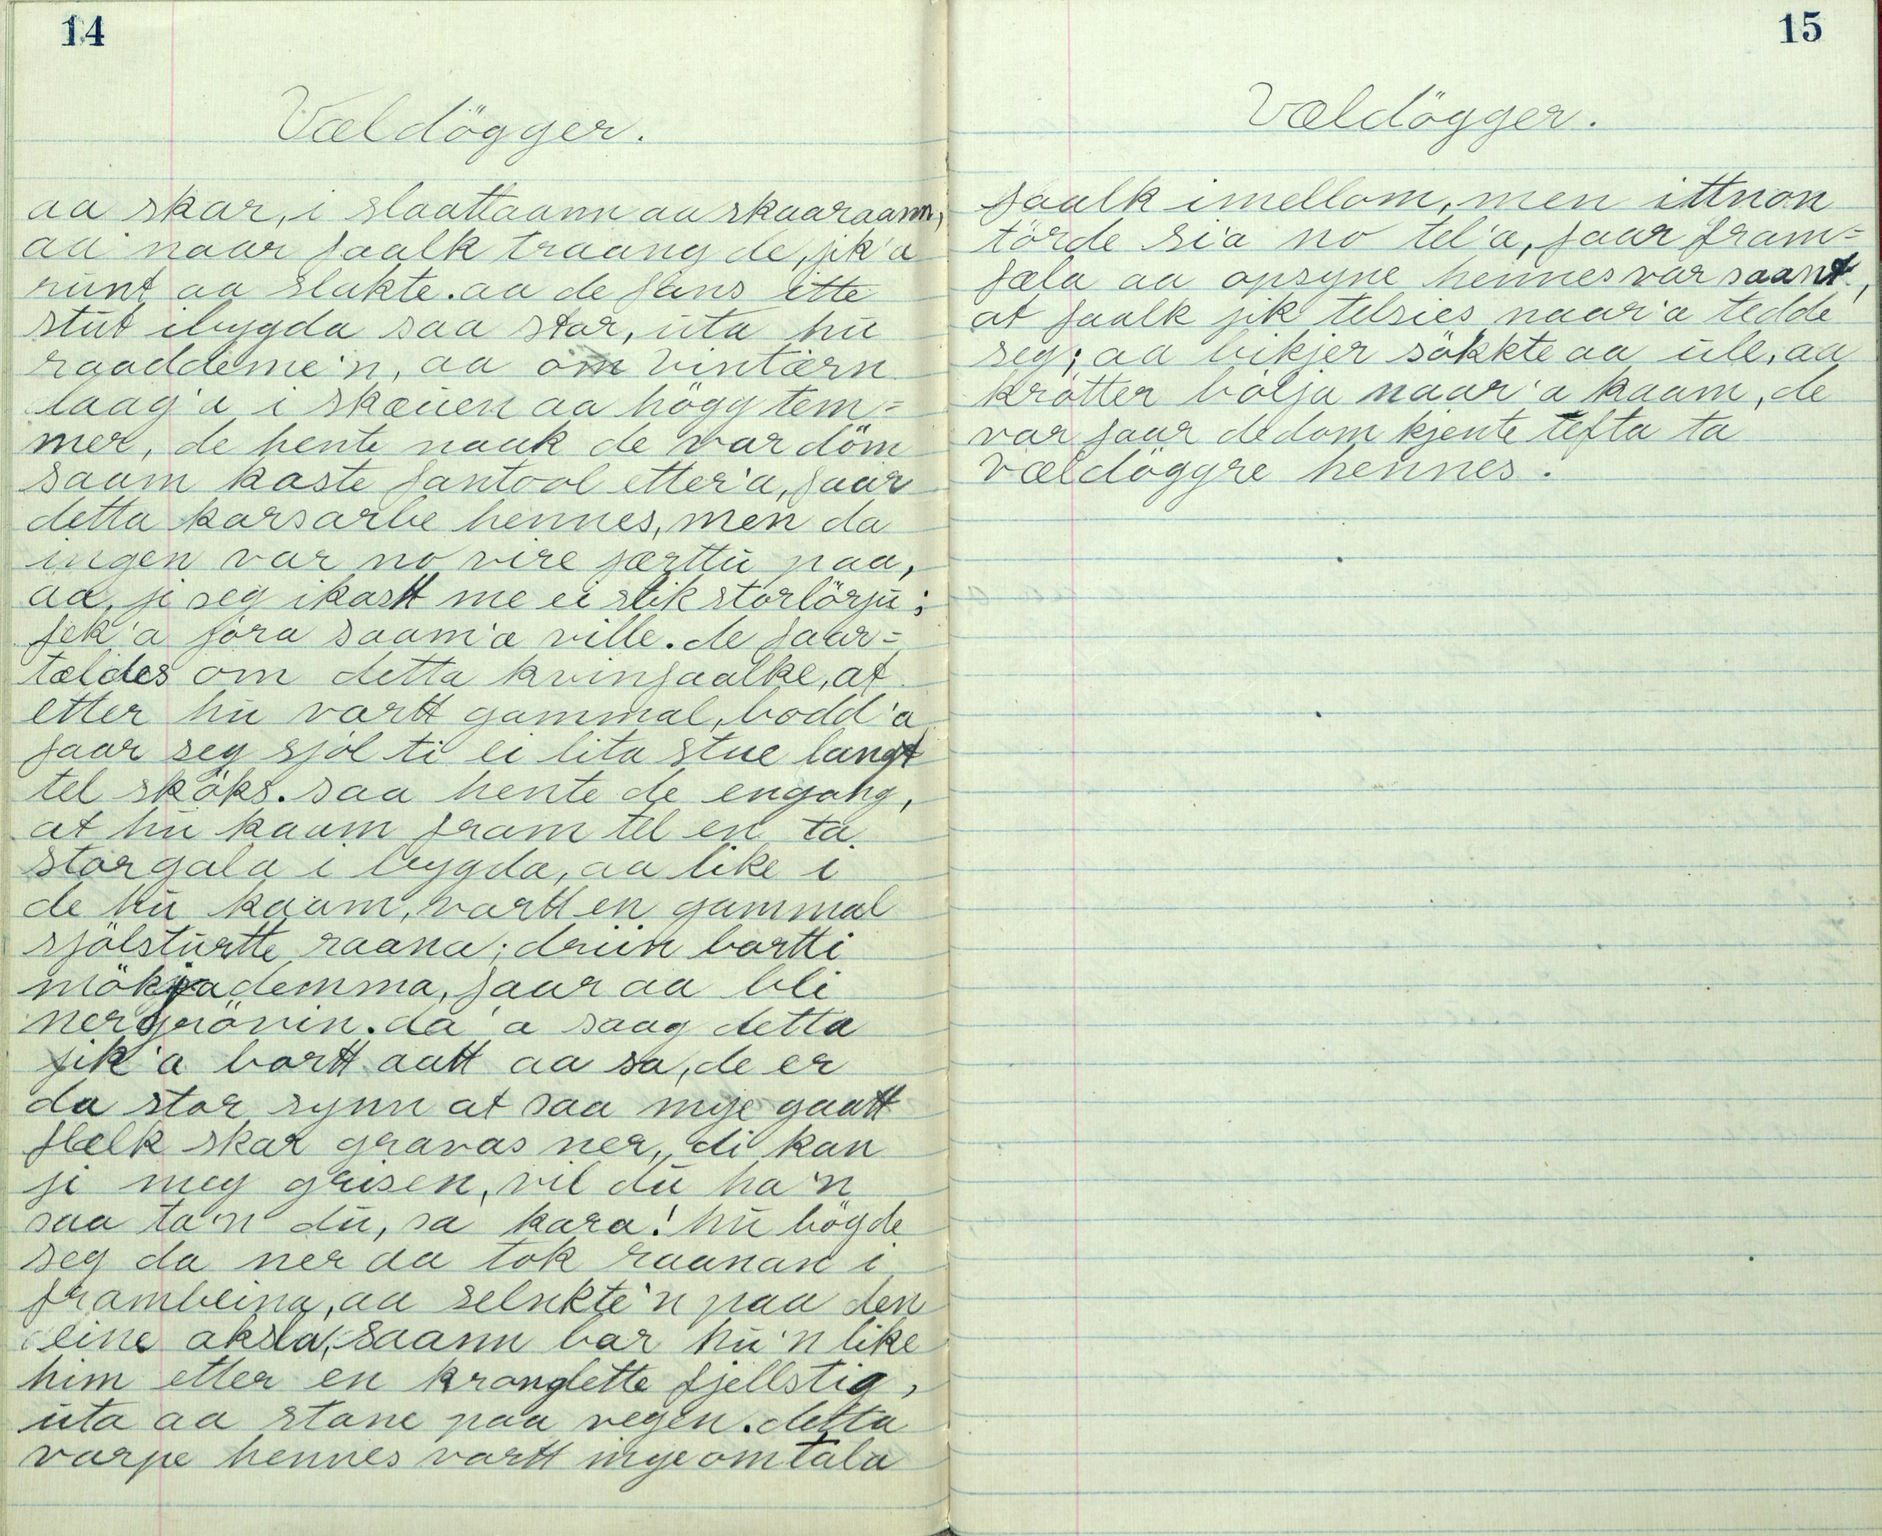 14
Vældögger.
aa skar, i slaattaann aa skaaraann,
aa naar faalk traang de, jik'a
runt aa slakte. aa de fans itte
stut i bygda saa stor, uta hu
raaddeme'n, aa om vintærn
laag'a i skæuen aa högg tem=
mer, de hente nauk de var döm
saam kaste fantool etter'a, faar
detta karsarbe hennes, men da
ingen var no vire færttu paa,
aa ji seg ikastt me ei slik storlörju;
fek'a jöra saam'a ville. de faar=
tældes om detta kvinfaalke, at
etter hu vartt gammal, bodd'a
faar seg sjöl ti ei lita stue langt
tel sköks. saa hente de engong,
at hu kaam fram tel en ta
storgala i bygda, aa like i
de hu kaam, vartt en gammal
sjölsturtte raana; driin bortti
mökjademma, faar aa bli
nergrövin. da'a saag detta
jik'a bortt aatt aa sa, de er
da stor synn at saa mye gaatt
flælk skar gravas ner, di kan
ji meg grisen, vil du ha'n
saa ta'n du, sa kara! hu högde
seg da ner aa tok raanan i
frambeina, aa selnkte'n paa den
eine aksla, saann bar hu'n like
him etter en kronglette fjellstig,
uta aa stane paa vegen. detta
varpe hennes vartt mye omtala
15
Vældögger.
faalk imellom, men ittnon
törde si'a no tel'a, faar fram=
fæla aa opsyne hennes var saant,
at faalk jik telsies naar'a tedde
seg; aa bikjer sökkte aa ule, aa
krötter bölja naar'a kaam, de
var faar de dom kjente tefta ta
vældöggre hennes.